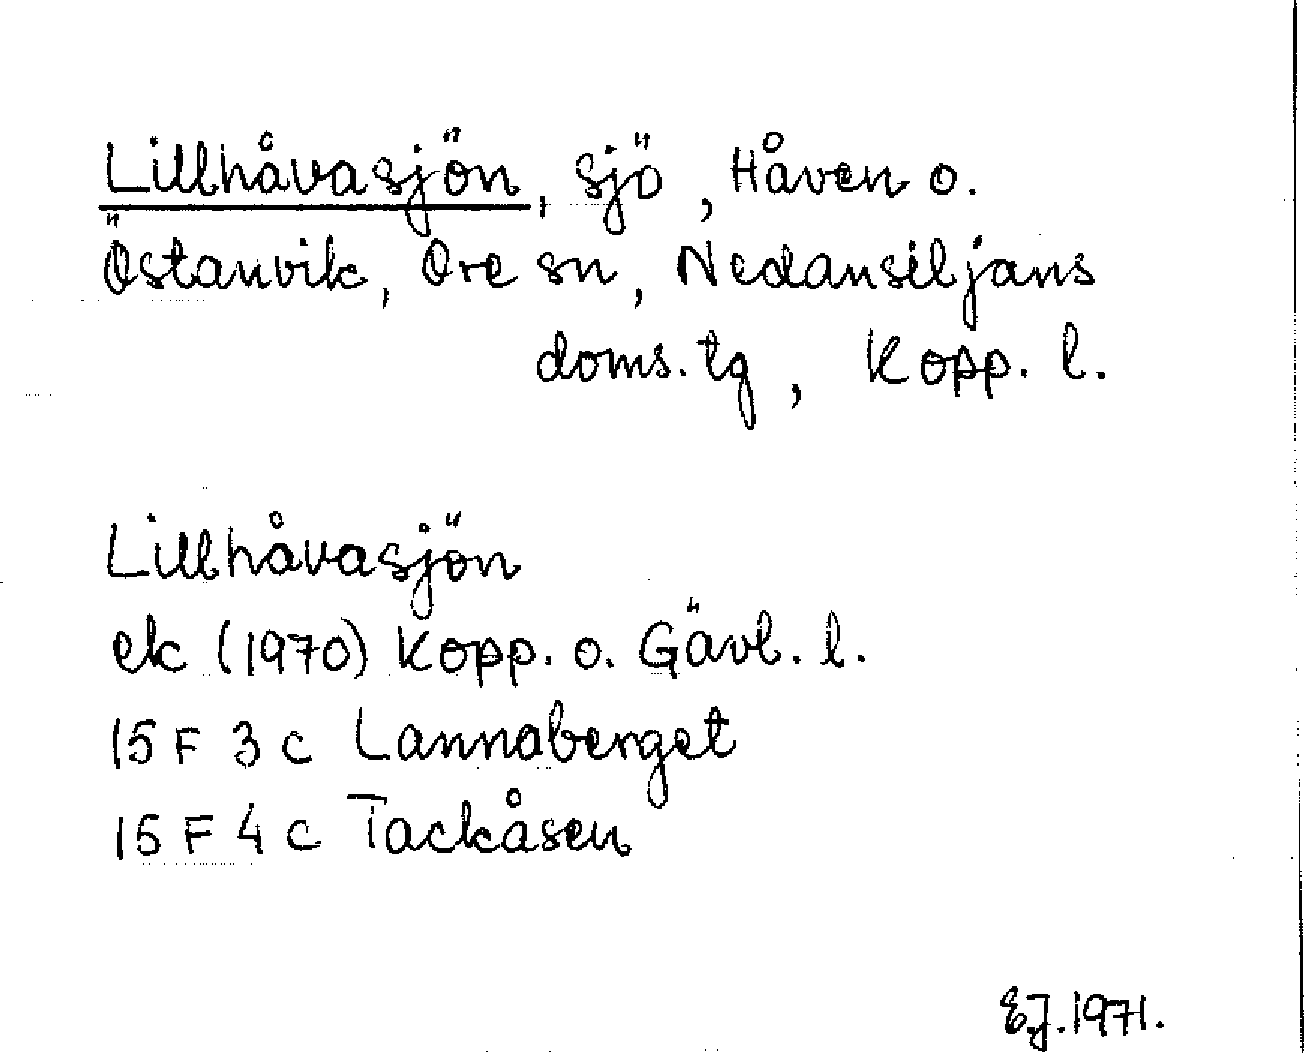 Lillhåvasjön, sjö, Håven o.
Östanvik, Ore sn, Nedansiljans
doms. tg, Kopp. l.
Lillhåvasjön
ek (1970) Kopp. o. Gävl. l.
15 F 3 c Lannaberget
15 F 4 c Tackåsen
E.J. 1971.